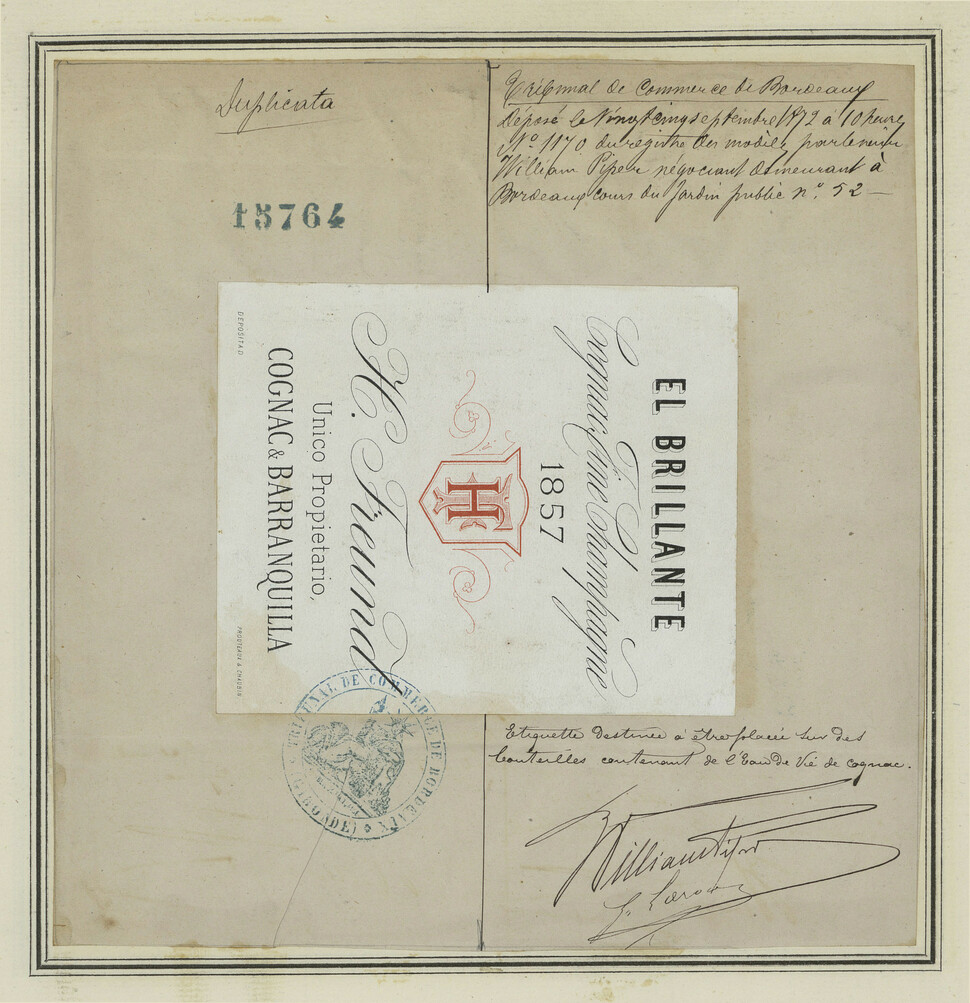 Duplicata
15764
Tribunal de Commerce de Bordeaux
Déposé le Vingt cinq septembre 1872 à 10 heures
N° 1170 du registre des modèles par le sieur
William Piper négociant demeurant à
Bordeaux cours du Jardin public n° 52 —
EL BRILLANTE
Cognac Fine Champagne
1857
HF
H. Freund
Unico Propietario,
COGNAC & BARRANQUILLA
DEPOSITAD
PROUTEAUX & CHAUBIN
TRIBUNAL DE COMMERCE DE BORDEAUX
(GIRONDE)
Etiquette destinée à être placée sur des
bouteilles contenant de l'Eau de Vie de Cognac.
William Piper